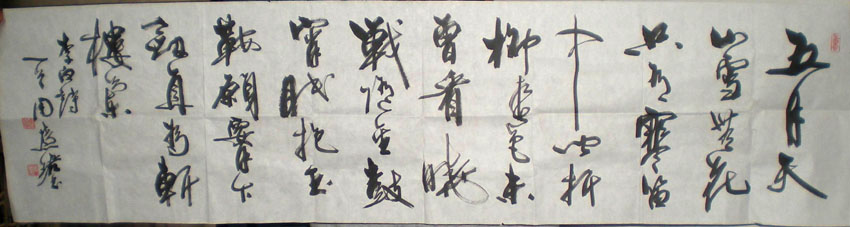 五月天
山雪無花
只有寒笛
中聞折
柳春色未
曾看曉
戰隨金鼓
宵眠抱玉
鞍願腰下
劍直為斬
樓蘭
李白詩
周